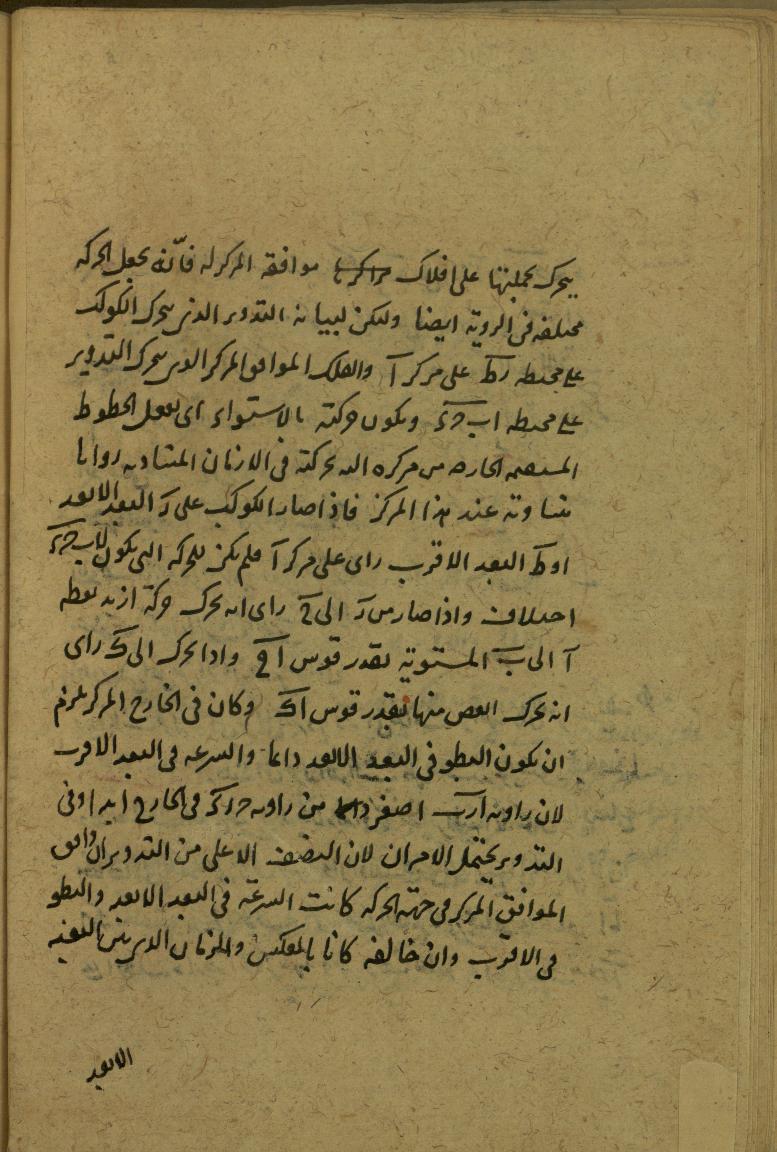 يتحرك بجملتها على افلاك مراكزها موافقة المركز له فانّه يجعل الحركة
مختلفة فى الروية ايضا وليكن لبيانه التدوير الذى يتحرك الكوكب
على محيطه زط على مركز آ والفلك الموافق المركز الذى يتحرك التدوير
على محيطه اب حد ويكون حركته بالاستواء اى يفعل الخطوط
المستقيمة الخارجة من مركزه اليه بحركته فى الازمان المتساوية زوايا
متساوية عند هذا المركز فاذا صار الكوكب على ز البعد الابعد
اوط البعد الاقرب راى على مركز آ فلم يكن للحركة التى يكون لاب حد
اختلاف واذا صار من ز الى ح راى انه تحرك حركة ازيد نقطة
آ الى ب المستوية بقدر قوس اح واذا تحرك الى ك راى
انه تحرك انقص منها بقدر قوس اك وكان فى الخارج المركز يلزم
ان يكون البطو فى البعد الابعد دائما والسرعة فى البعد الاقرب
لان زاوية ارب اصغر من زاوية حرد فى الخارج ابدا وفى
التدوير يحتمل الامران لان النصف الاعلى من التدوير ان وافق
الموافق المركز فى جهة الحركة كانت السرعة فى البعد الابعد والبطو
فى الاقرب وان خالفه كانا بالعكس والزمان الذى بين البعد
الابعد